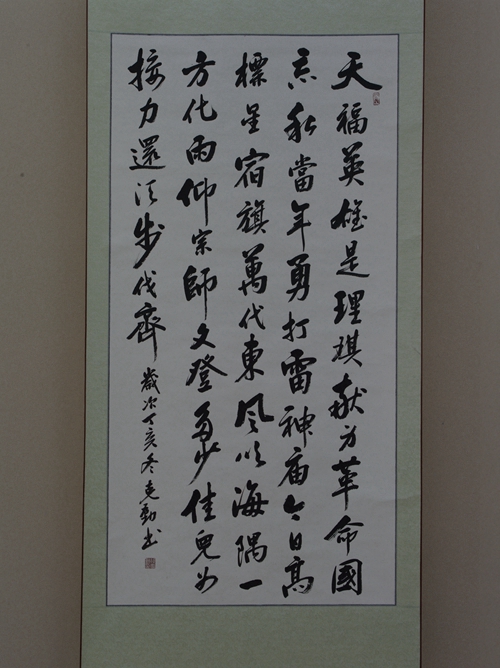 天福英雄是理琪献身革命國
忘私當年勇打雷神庙今日高
標星宿旗萬代東風吹海隅一
方化雨仰宗師文登多少佳兒女
接力還須步伐齊
歲次丁亥冬克書